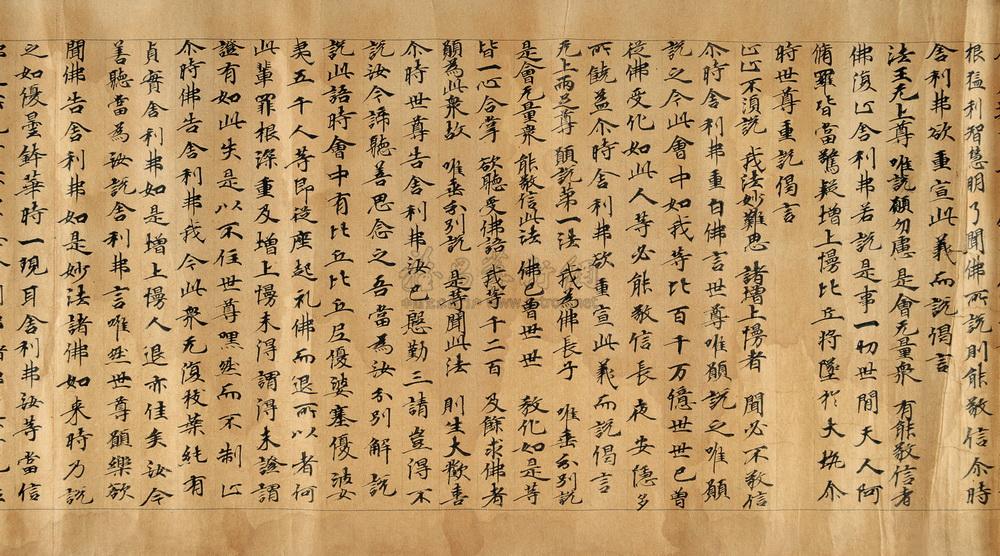 根猛利智慧明了聞佛所說則能敬信尒時
舍利弗欲重宣此義而說偈言
法王无上尊 唯說願勿慮 是會无量衆 有能敬信者
佛復止舍利弗若說是事一切世間天人阿
脩羅皆當驚疑增上慢比丘將墜於大坑尒
時世尊重說偈言
止止不湏說 我法妙難思 諸增上慢者 聞必不敬信
尒時舍利弗重白佛言世尊唯願說之唯願
說之今此會中如我等比百千万億世世已曾
從佛受化如此人等必能敬信長夜安隱多
所饒益尒時舍利弗欲重宣此義而說偈言
无上兩足尊 願說第一法 我為佛長子 唯垂分別說
是會无量衆 能敬信此法 佛已曾世世 教化如是等
皆一心合掌 欲聽受佛語 我等千二百 及餘求佛者
願為此衆故 唯垂分別說 是等聞此法 則生大歡喜
尒時世尊告舍利弗汝已慇勤三請豈得不
說汝今諦聽善思念之吾當為汝分別解說
說此語時會中有比丘比丘尼優婆塞優婆
夷五千人等即從座起礼佛而退所以者何
此輩罪根深重及增上慢未得謂得未證謂
證有如此失是以不住世尊嘿然而不制止
尒時佛告舍利弗我今此衆无復枝葉純有
貞實舍利弗如是增上慢人退亦佳矣汝今
善聽當為汝說舍利弗言唯然世尊願樂欲
聞佛告舍利弗如是妙法諸佛如來時乃說
之如優曇鉢華時一現耳舍利弗汝等當信